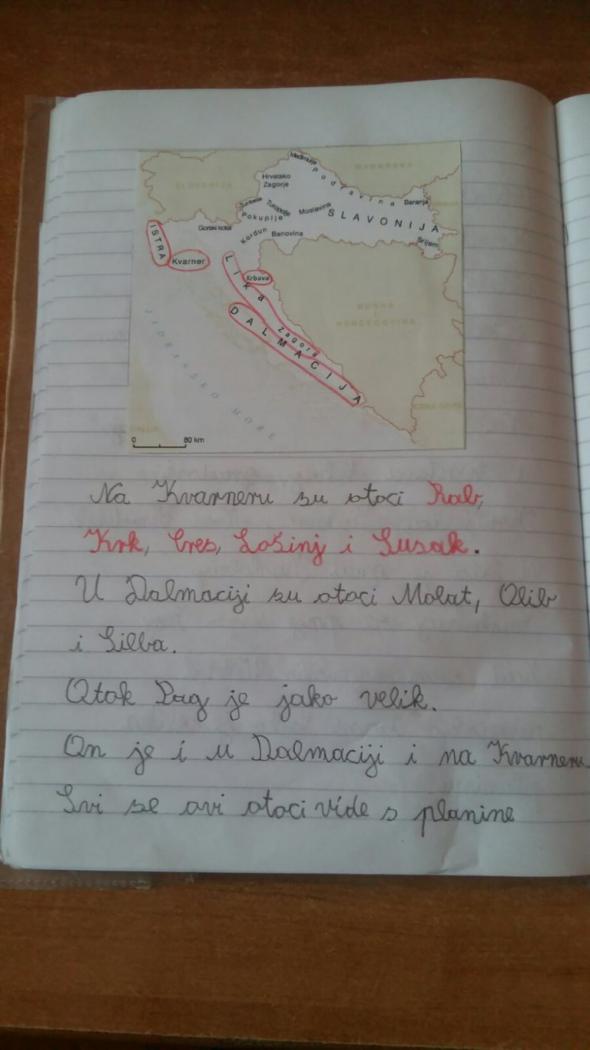 Međimurje
MAĐARSKA
SLOVENIJA
Hrvatsko
Zagorje
Podravina
Baranja
Turopolje
Moslavina
Pokuplje
SLAVONIJA
Gorski kotar
Kordun
Banovina
Srijem
ISTRA
Kvarner
Lika
Krbava
BOSNA I
HERCEGOVINA
Zagora
DALMACIJA
JADRANSKO MORE
CRNA GORA
ITALIJA
0 80 km
Na Kvarneru su otoci Rab,
Krk, Cres, Lošinj i Susak.
U Dalmaciji su otoci Molat, Olib
i Silba.
Otok Pag je jako velik.
On je i u Dalmaciji i na Kvarneru
Svi se ovi otoci vide s planine